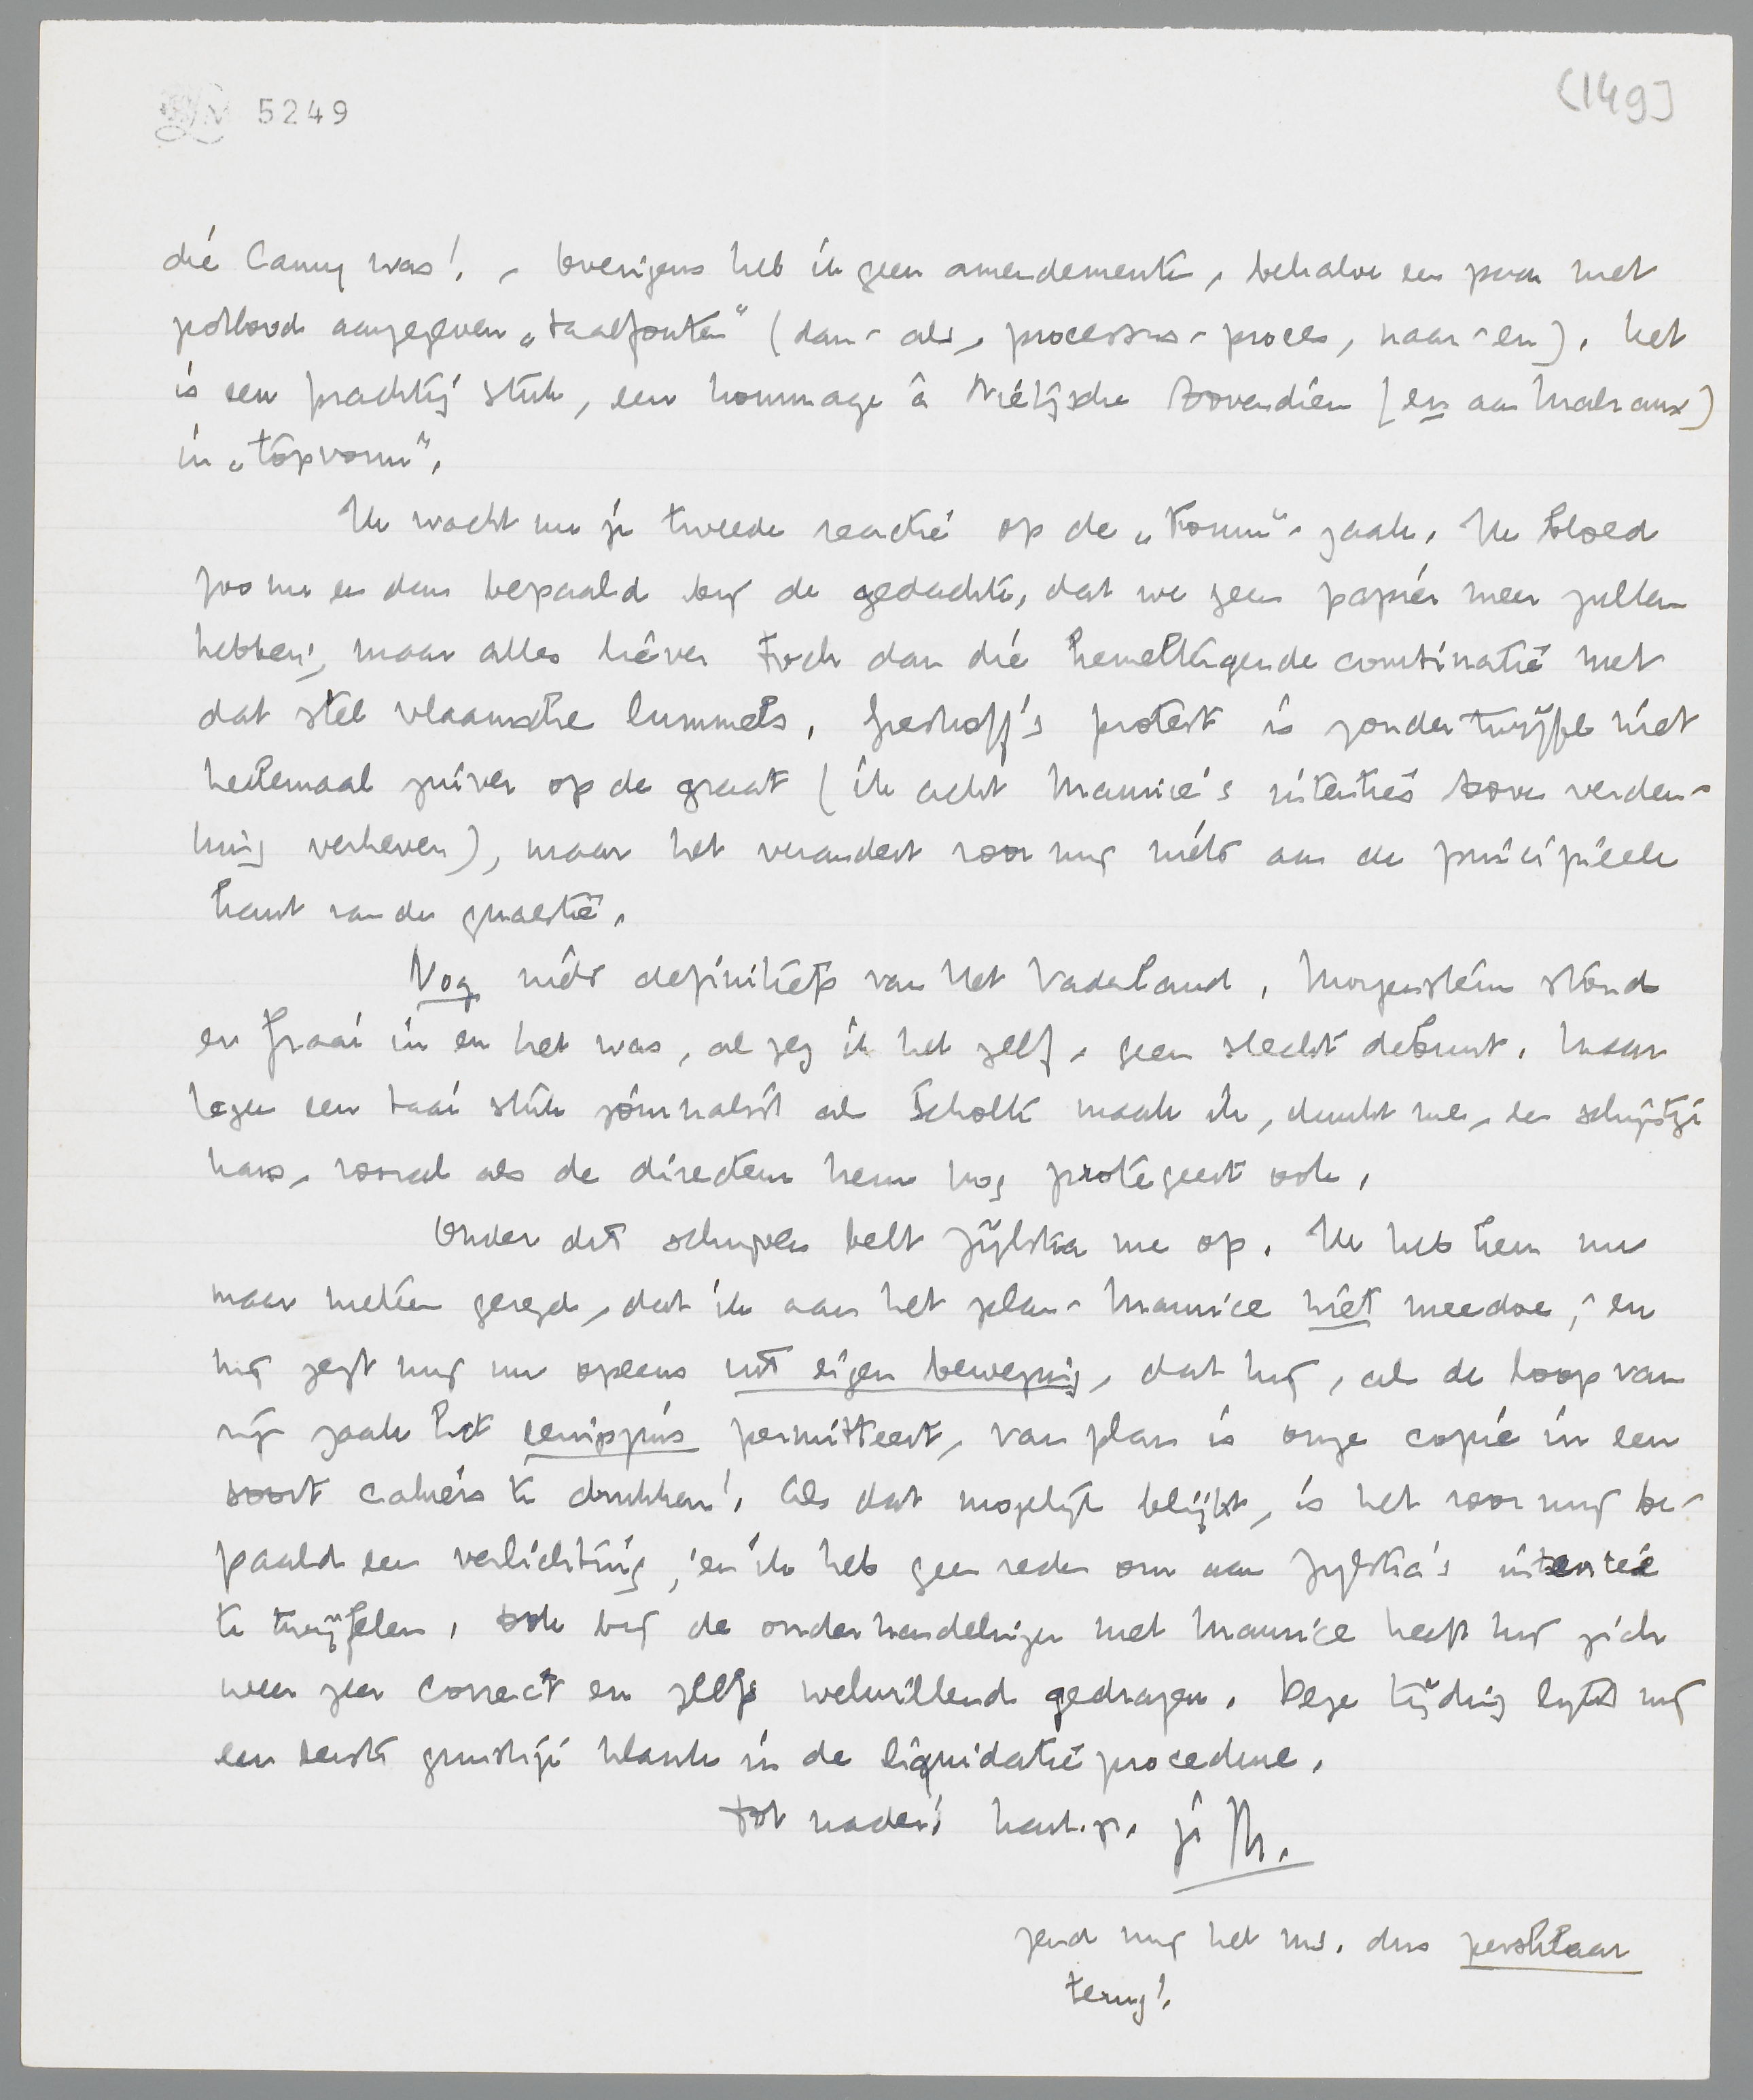 5249
(149]
die Canny was! – Overigens heb ik geen amendementen, behalve een paar met
potlood aangegeven „taalfouten" (dan - als, processus - proces, naar - en). Het
is een prachtig stuk, een hommage à Nietzsche bovendien (en aan Malraux)
in „topvorm".
Ik wacht nu je tweede reactie op de „Forum"-zaak. Ik bloed
zoo nu en dan bepaald bij de gedachte, dat we geen papier meer zullen
hebben; maar alles liever toch dan die hemeltergende combinatie met
dat stel vlaamsche lummels. Greshoff's protest is zonder twijfel niet
heelemaal zuiver op de graat (ik acht Maurice's intenties boven verden-
king verheven), maar het verandert voor mij niets aan de principieele
kant van de quaestie.
Nog niets definitiefs van Het Vaderland. Morgenstern stond
er fraai in en het was, al zeg ik het zelf, geen slecht debuut. Maar
tegen een taai stuk journalist als Scholte maak ik, dunkt me, een schijntje
kans, vooral als de directeur hem nog protegeert ook.
Onder dit schrijven belt Zijlstra me op. Ik heb hem nu
maar meteen gezegd, dat ik aan het plan-Maurice niet meedoe; en
hij zegt mij nu opeens uit eigen beweging, dat hij, als de loop van
zijn zaak het eenigszins permitteert, van plan is onze copie in een
soort cahiers te drukken! Als dat mogelijk blijkt, is het voor mij be-
paald een verlichting; en ik heb geen reden om aan Zijlstra's intentie
te twijfelen. Ook bij de onderhandelingen met Maurice heeft hij zich
weer zeer correct en zelfs welwillend gedragen. Deze tijding lijkt mij
een eerste gunstige klank in de liquidatieprocedure.
Tot nader! hart. gr. je M.
Zend mij het ms. dus persklaar
terug!